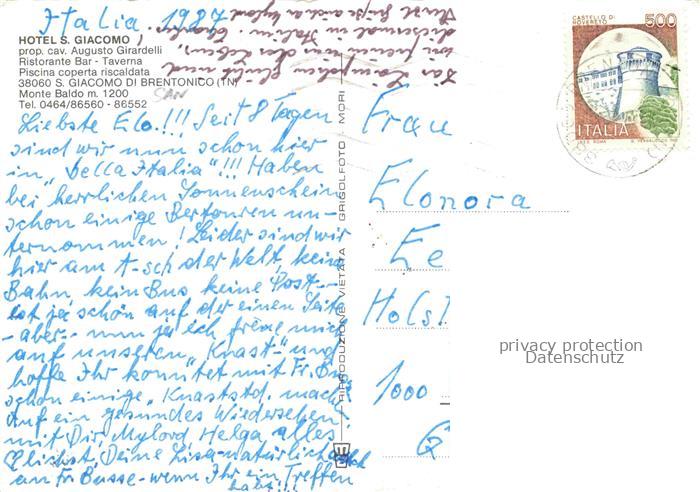 Italia 1987
HOTEL S. GIACOMO
prop. cav. Augusto Girardelli
Ristorante Bar - Taverna
Piscina coperta riscaldata
38060 S. GIACOMO DI BRENTONICO (TN)
Monte Baldo m. 1200
Tel. 0464/86560 - 86552
Liebste Elo.!!! Seit 8 Tagen
sind wir nun schon hier
in „bella Italia"!!! Haben
bei herrlichen Sonnenschein
schon einige Bertouren un-
ternommen! Leider sind wir
hier am A-sch der Welt, keine
Bahn, kein Bus keine Post--
ist ja schön auf der einen Seite
-aber-- nun ja ich freue mich
auf unseren „Knast-" und
hoffe Ihr konntet mit Fr. Bus
schon einige „Knaststd. mach
Auf ein gesundes Wiedersehen
mit Dir, Mylord, Helga, alles
Liebst, Deine Lisa natürlich auch
an Fr. Busse - wenn Ihr ein Treffen
habt!!!
wir freuen uns des Lebens,
diesmal in Italien.
RIPRODUZIONE VIETATA GRIGOLFOTO MORI
CASTELLO DI
ROVERETO
500
ITALIA
Frau
Elonora
Ee
Hols
1000
privacy protection
Datenschutz